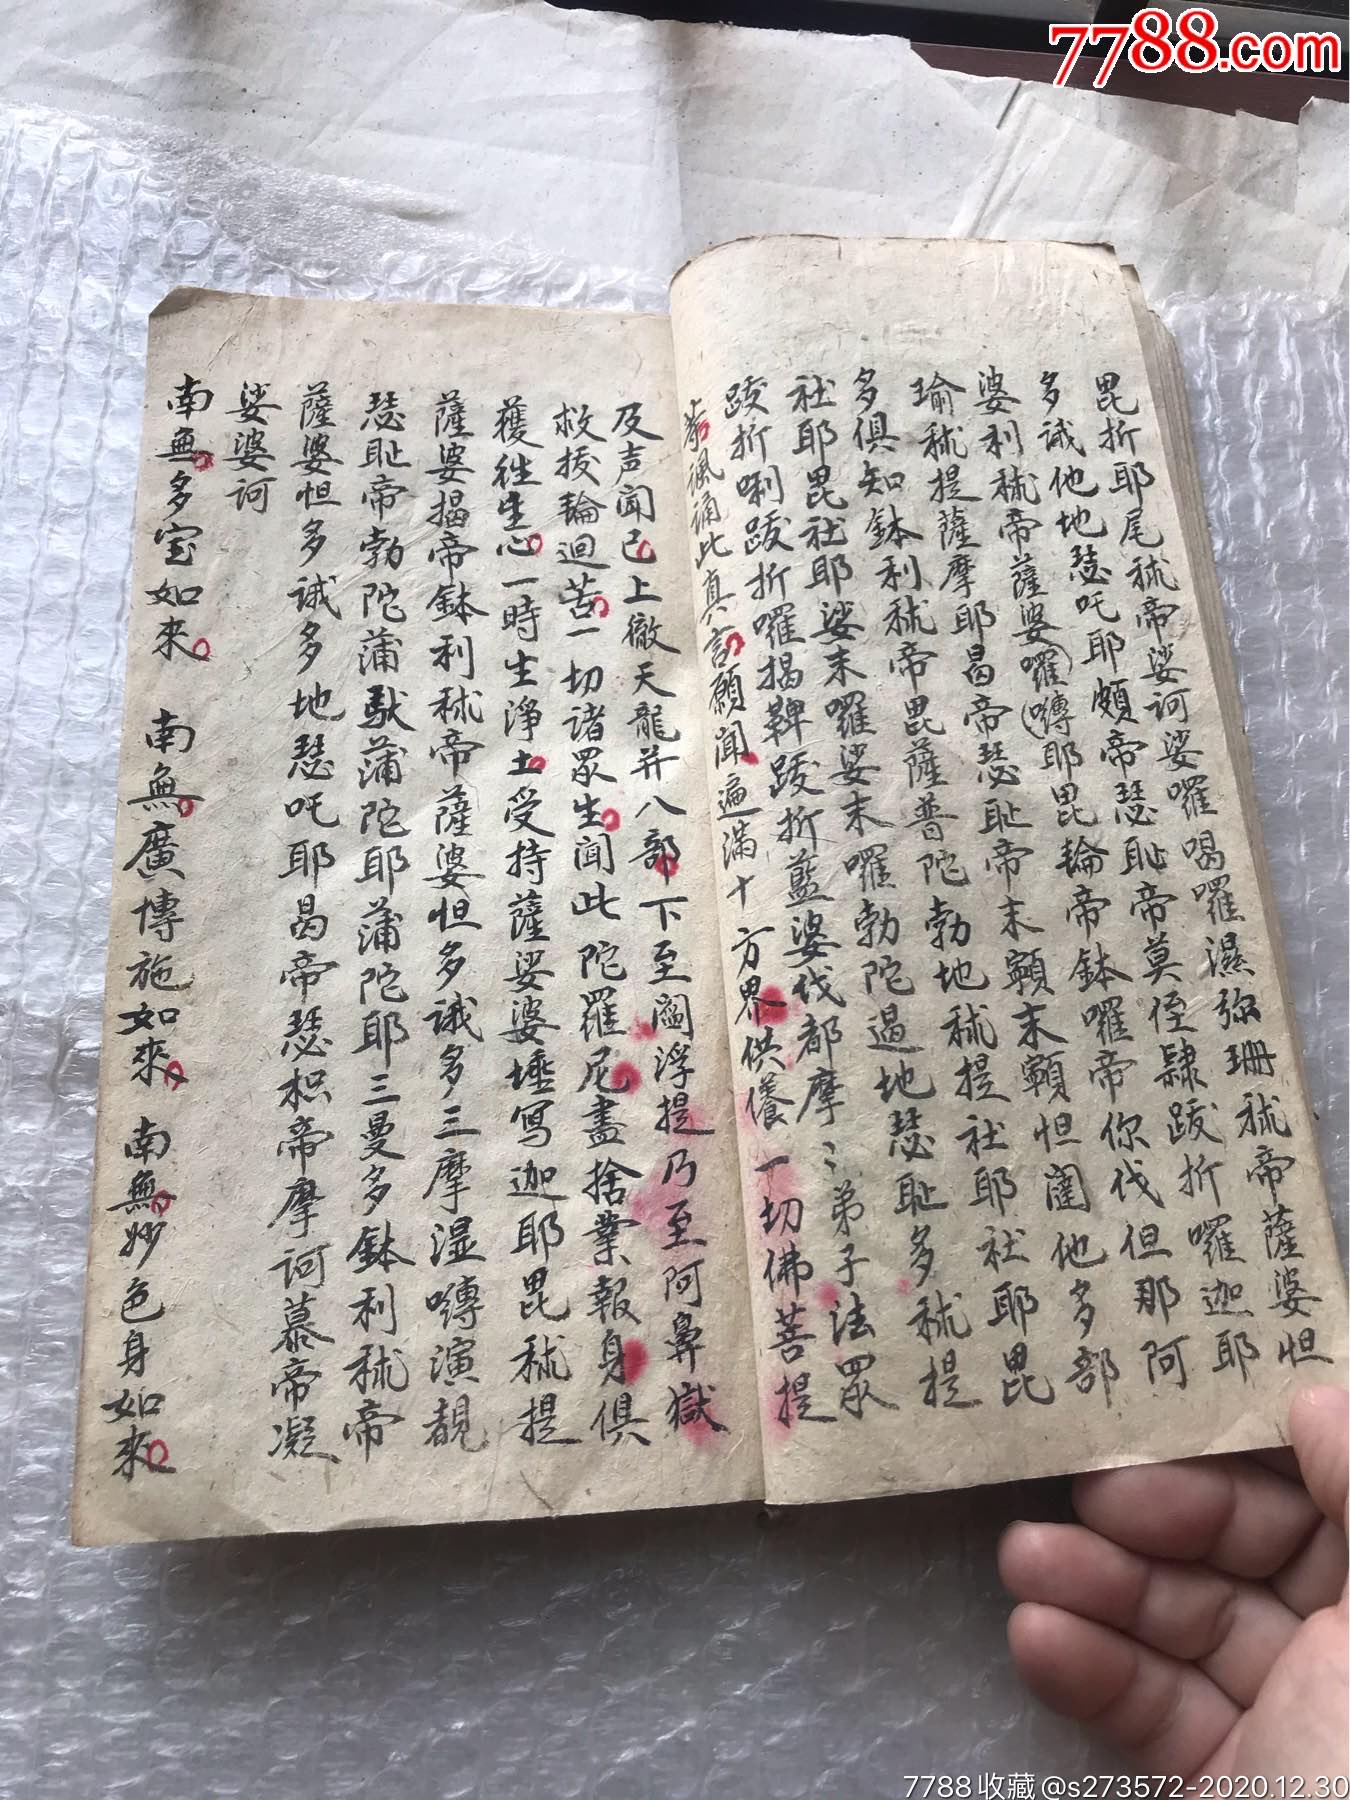 7788.com
毘折耶尾秫帝娑诃娑囉喝囉濕弥珊秫帝薩婆怛
多诚他地瑟吒耶頗帝瑟耻帝莫侄隸跋折囉迦耶
婆利秫帝薩婆囉嚩耶毘輪帝鉢囉帝你伐但那阿
瑜秫提薩摩耶曷帝瑟耻帝末䫂末䫂怛闥他多部
多俱知鉢利秫帝毘薩普陀勃地秫提社耶社耶毘
社耶毘社耶娑末囉娑末囉勃陀遏地瑟耻多秫提
跋折唎跋折囉揭鞞跋折藍婆伐都摩〻弟子法眾
恭諷誦此真言願聞遍滿十方界供養一切佛菩提
及声闻已上徹天龍并八部下至閻浮提乃至阿鼻獄
救拔輪迴苦一切诸眾生闻此陀羅尼盡捨業報身俱
獲徃生心一時生淨土受持薩娑婆埵寫迦耶毘秫提
薩婆揭帝鉢利秫帝薩婆怛多诚多三摩湿嚩演覩
瑟耻帝勃陀蒲馱蒲陀耶蒲陀耶三曼多鉢利秫帝
薩婆怛多诚多地瑟吒耶曷帝瑟枳帝摩诃慕帝凝
娑婆诃
南無多宝如來 南無廣博施如來 南無妙色身如來
7788收藏@s273572-2020.12.30